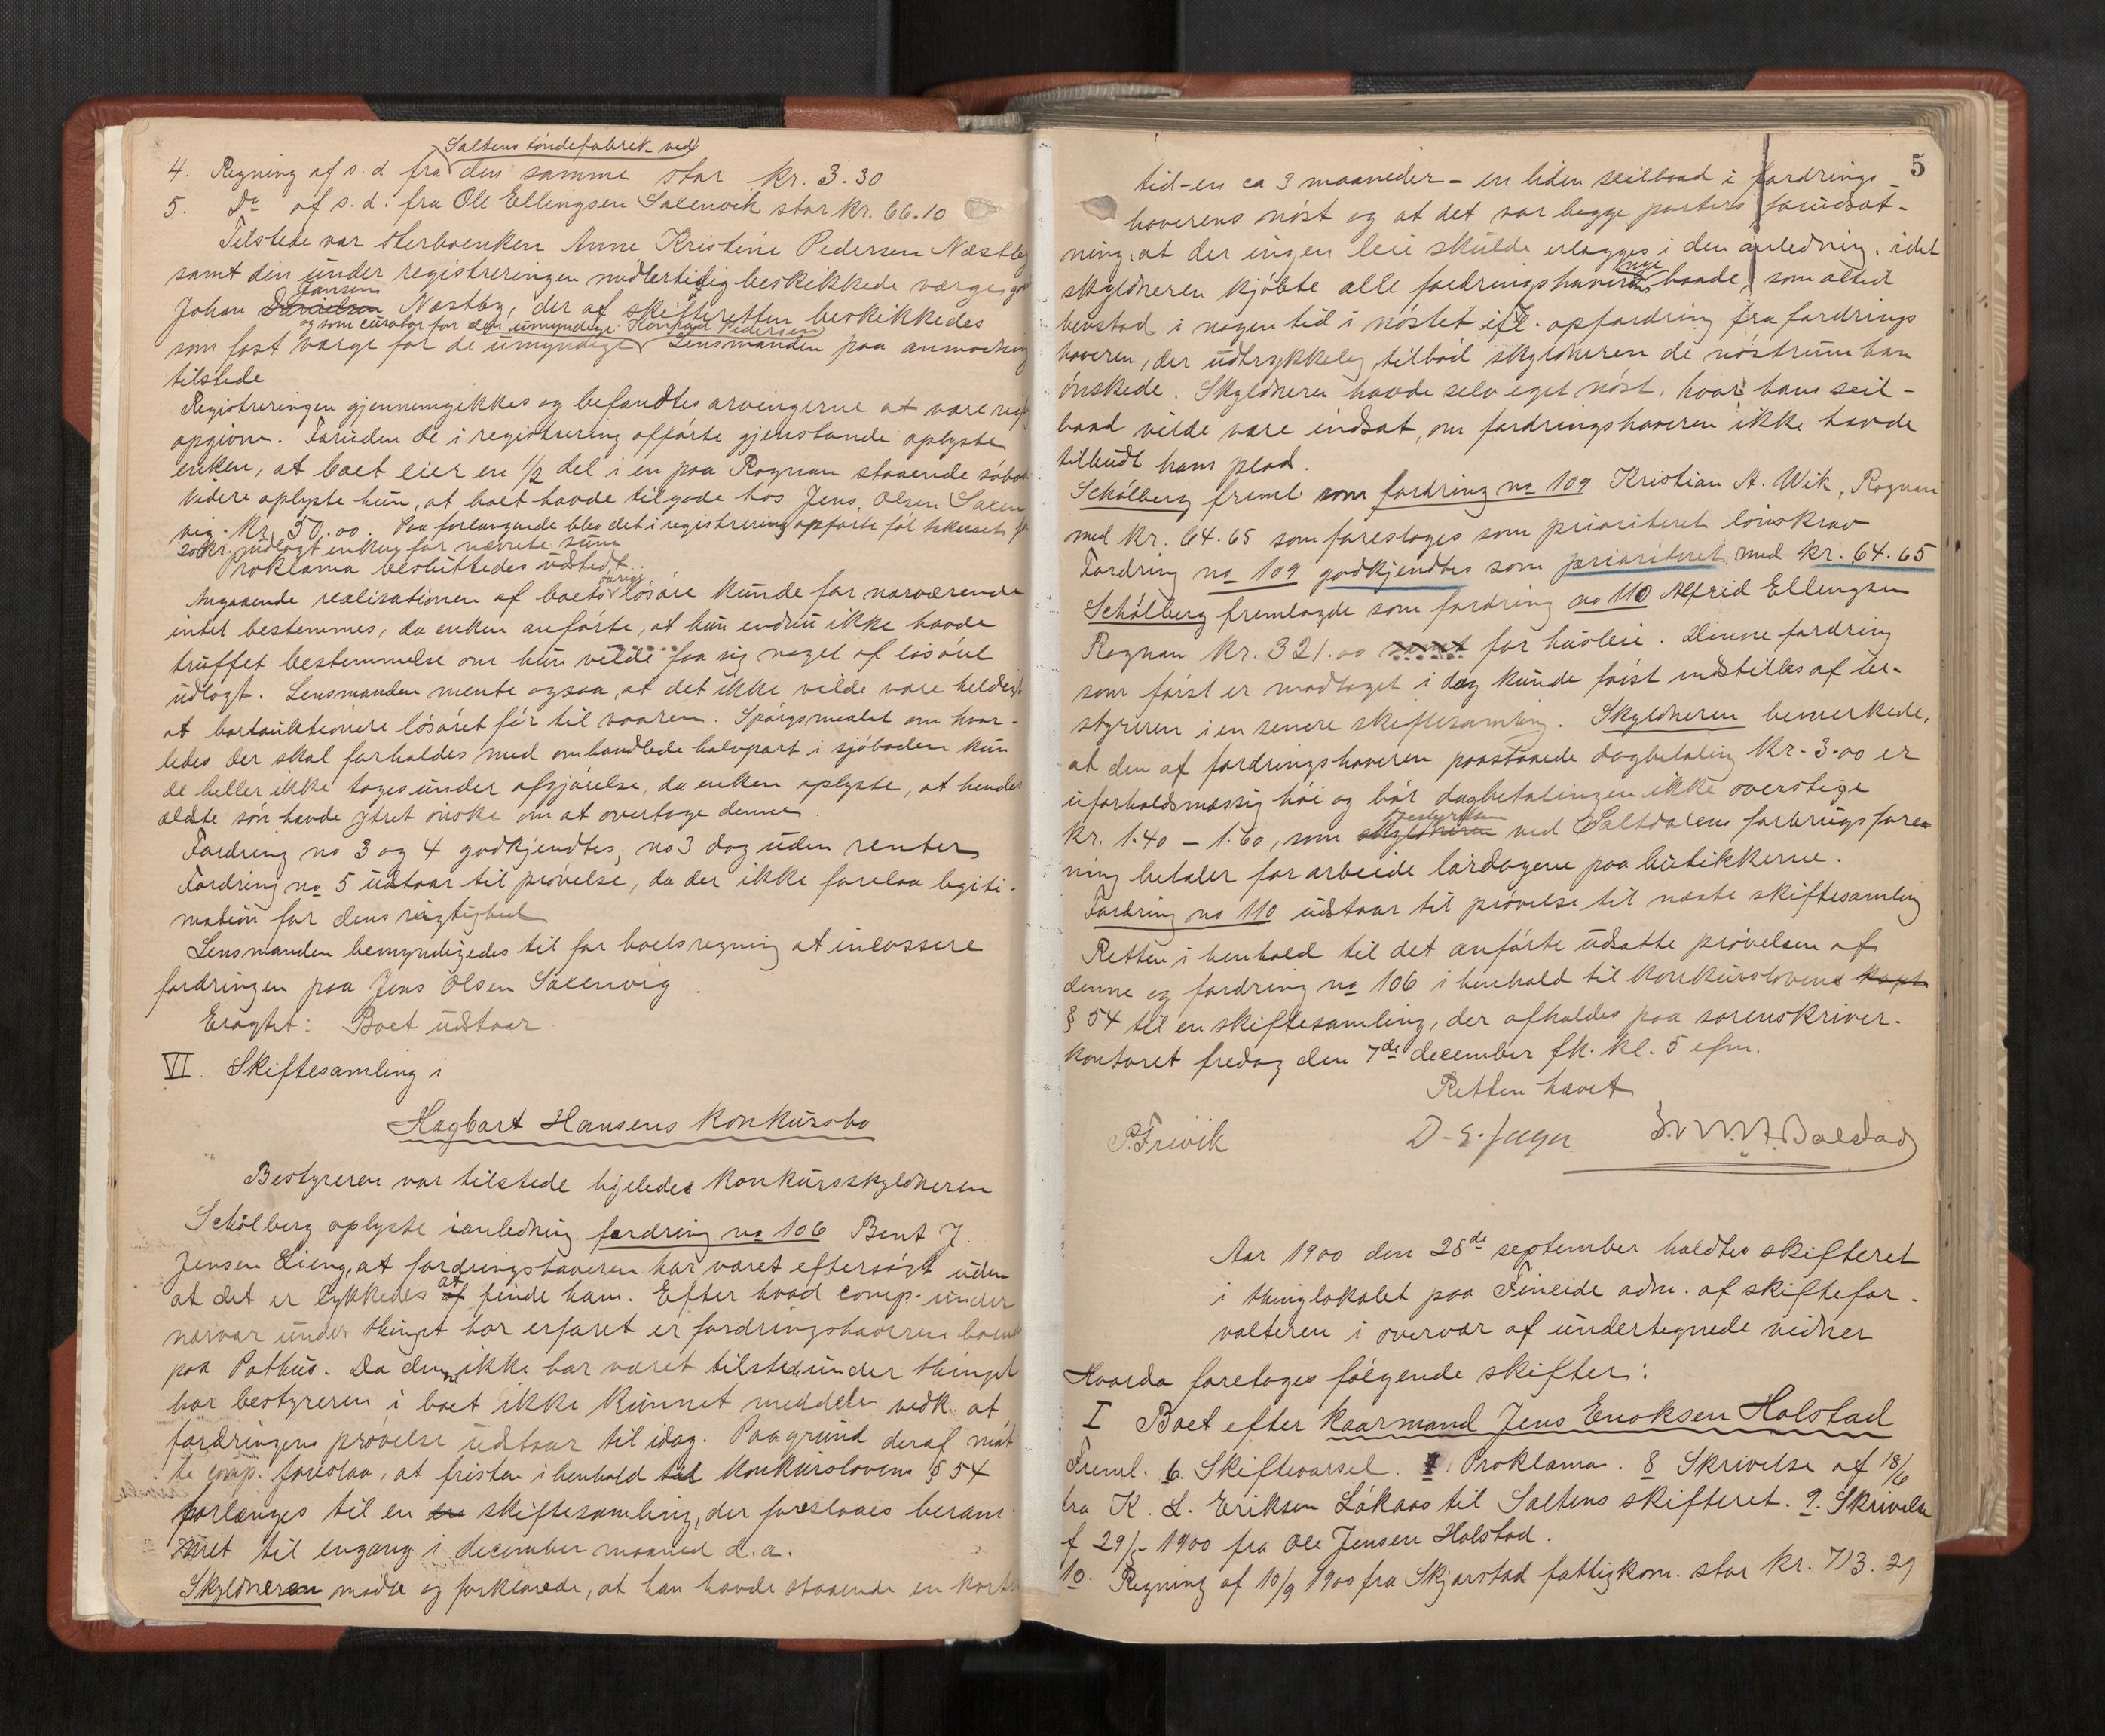 Saltens töndefabrik ved
4. Regning af s. d fra den samme stor kr. 3-30
5. Do af s. d. fra Ole Ellingsen Saxenvik stor kr. 66.10
Tilstede var sterboenken Anne Kristine Pedersen Næstby
samt den under registreringen midlertidig beskikkede værge
Jansen
Johan Danielsen Næstby, der af skifteretten beskikkedes
og som curator for den umyndige Pedersen
som fast værge for de umyndige Lensmanden paa anmodning
tilstede
Registreringen gjennemgikkes og befandtes arvingerne at være
opgivne. Foruden de i registrering opförte gjenstande oplyste
enken, at boet eier en 1/2 del i en paa Rognan staaende
Videre oplyste hun, at boet havde tilgode hos Jens Olsen Saxen
vig kr. 50.00. Paa forlangende blev det i registrering opförte föl taxeret
20 kr. udlagt enken for nævnte sum
Proklama besluttedes udstedt.
övrige
Angaaende realisationen af boets lösöre kunde for nærværende
intet bestemmes, da enken anförte, at hun endnu ikke havde
truffet bestemmelse om hun vilde faa sig noget af lösöret
udlagt. Lensmanden mente ogsaa, at det ikke vilde være heldigt
at bortauktionere lösöret för til vaaren. Spörgsmaalet om hvor-
ledes der skal forholdes med omhandlede halvpart i sjöboden kun
de heller ikke tages under afgjörelse, da enken oplyste, at hendes
ældste sön havde ytret önske om at overtage denne.
Fordring no 3 og 4 godkjendtes, no 3 dog uden renter
Fordring no 5 udstaar til prövelse, da der ikke forelaa legiti-
mation for dens rigtighed
Lensmanden bemyndigedes til for boets regning at incassere
fordringen paa Jens Olsen Saxenvig.
Eragtet: Boet udstaar
VI. Skiftesamling i
Hagbart Hansens konkursbo
Bestyreren var tilstede ligeledes konkursskyldneren
Schölberg oplyste i anledning fordring no 106 Bent J.
Jensen Lieng, at fordringshaveren har været eftersögt uden
at
at det er lykkedes af finde ham. Efter hvad comp. under
nærvær under thinget har erfaret er fordringshaveren
paa Pothus. Da denne ikke har været tilstede under thinget
har bestyreren i boet ikke kunnet meddele vedk. at
fordringens prövelse udstaar til idag. Paa grund deraf maat
te comp. foreslaa, at fristen i henhold til konkurslovens § 54
forlænges til en en skiftesamling, der foreslaaes beram-
met til engang i december maaned d. a.
Skyldneren mödte og forklarede, at han havde staaende en kort
5
tid - en ca 3 maaneder - en liden seilbaad i fordrings-
haverens nöst og at det var begge parters forudsæt-
ning, at der ingen leie skulde erlægges i den anledning, idet
nye
skyldneren kjöbte alle fordringshaverens baade, som altid
henstod i nogen tid i nöstet ifl. opfordring fra fordrings
haveren, der udtrykkelig tilböd skyldneren de nöstrum han
önskede. Skyldneren havde selv eget nöst, hvori hans seil-
baad vilde være indsat, om fordringshaveren ikke havde
tilbudt ham plads.
Schölberg freml. som fordring no 109 Kristian A. Wik, Rognan
med kr. 64.65 som foreslaaes som prioriteret lönskrav
Fordring no 109 godkjendtes som prioriteret med kr. 64.65
Schölberg fremlagde som fordring no 110 Alfrid Ellingsen
Rognan kr. 321.00 samt for husleie. Denne fordring
som först er modtaget i dag kunde först indstilles af be-
styreren i en senere skiftesamling. Skyldneren bemerkede,
at den af fordringshaveren paastaaede dagbetaling kr. 3.00 er
uforholdsmæssig höi og bör dagbetalingen ikke overstige
bestyrelsen
kr. 1.40 - 1.60, som skyldneren ved Saltdalens forbrugsfore-
ning betaler for arbeide lördagene paa butikkerne.
Fordring no 110 udstaar til prövelse til næste skiftesamling
Retten i henhold til det anförte udsatte prövelsen af
denne og fordring no 106 i henhold til konkurslovens kapt
§ 54 til en skiftesamling, der afholdes paa sorenskriver-
kontoret fredag den 7de december fk. kl. 5 efm.
Retten hævet
P. Trivik D. E. Jeger Balstad
Aar 1900 den 28de september holdtes skifteret
i thinglokalet paa Fineide adm. af skiftefor-
valteren i overvær af undertegnede vidner
Hvorda foretoges fölgende skifter:
I Boet efter kaarmand Jens Enoksen Holstad
Freml. 6. Skiftevarsel. 7. Proklama. 8 Skrivelse af 18/6
fra K. L. Eriksen Lökaas til Saltens skifteret. 9. Skrivelse
f 29/- 1900 fra Ole Jensen Holstad.
10. Regning af 10/9 1900 fra Skjærstad fattigkom. stor kr. 713.29